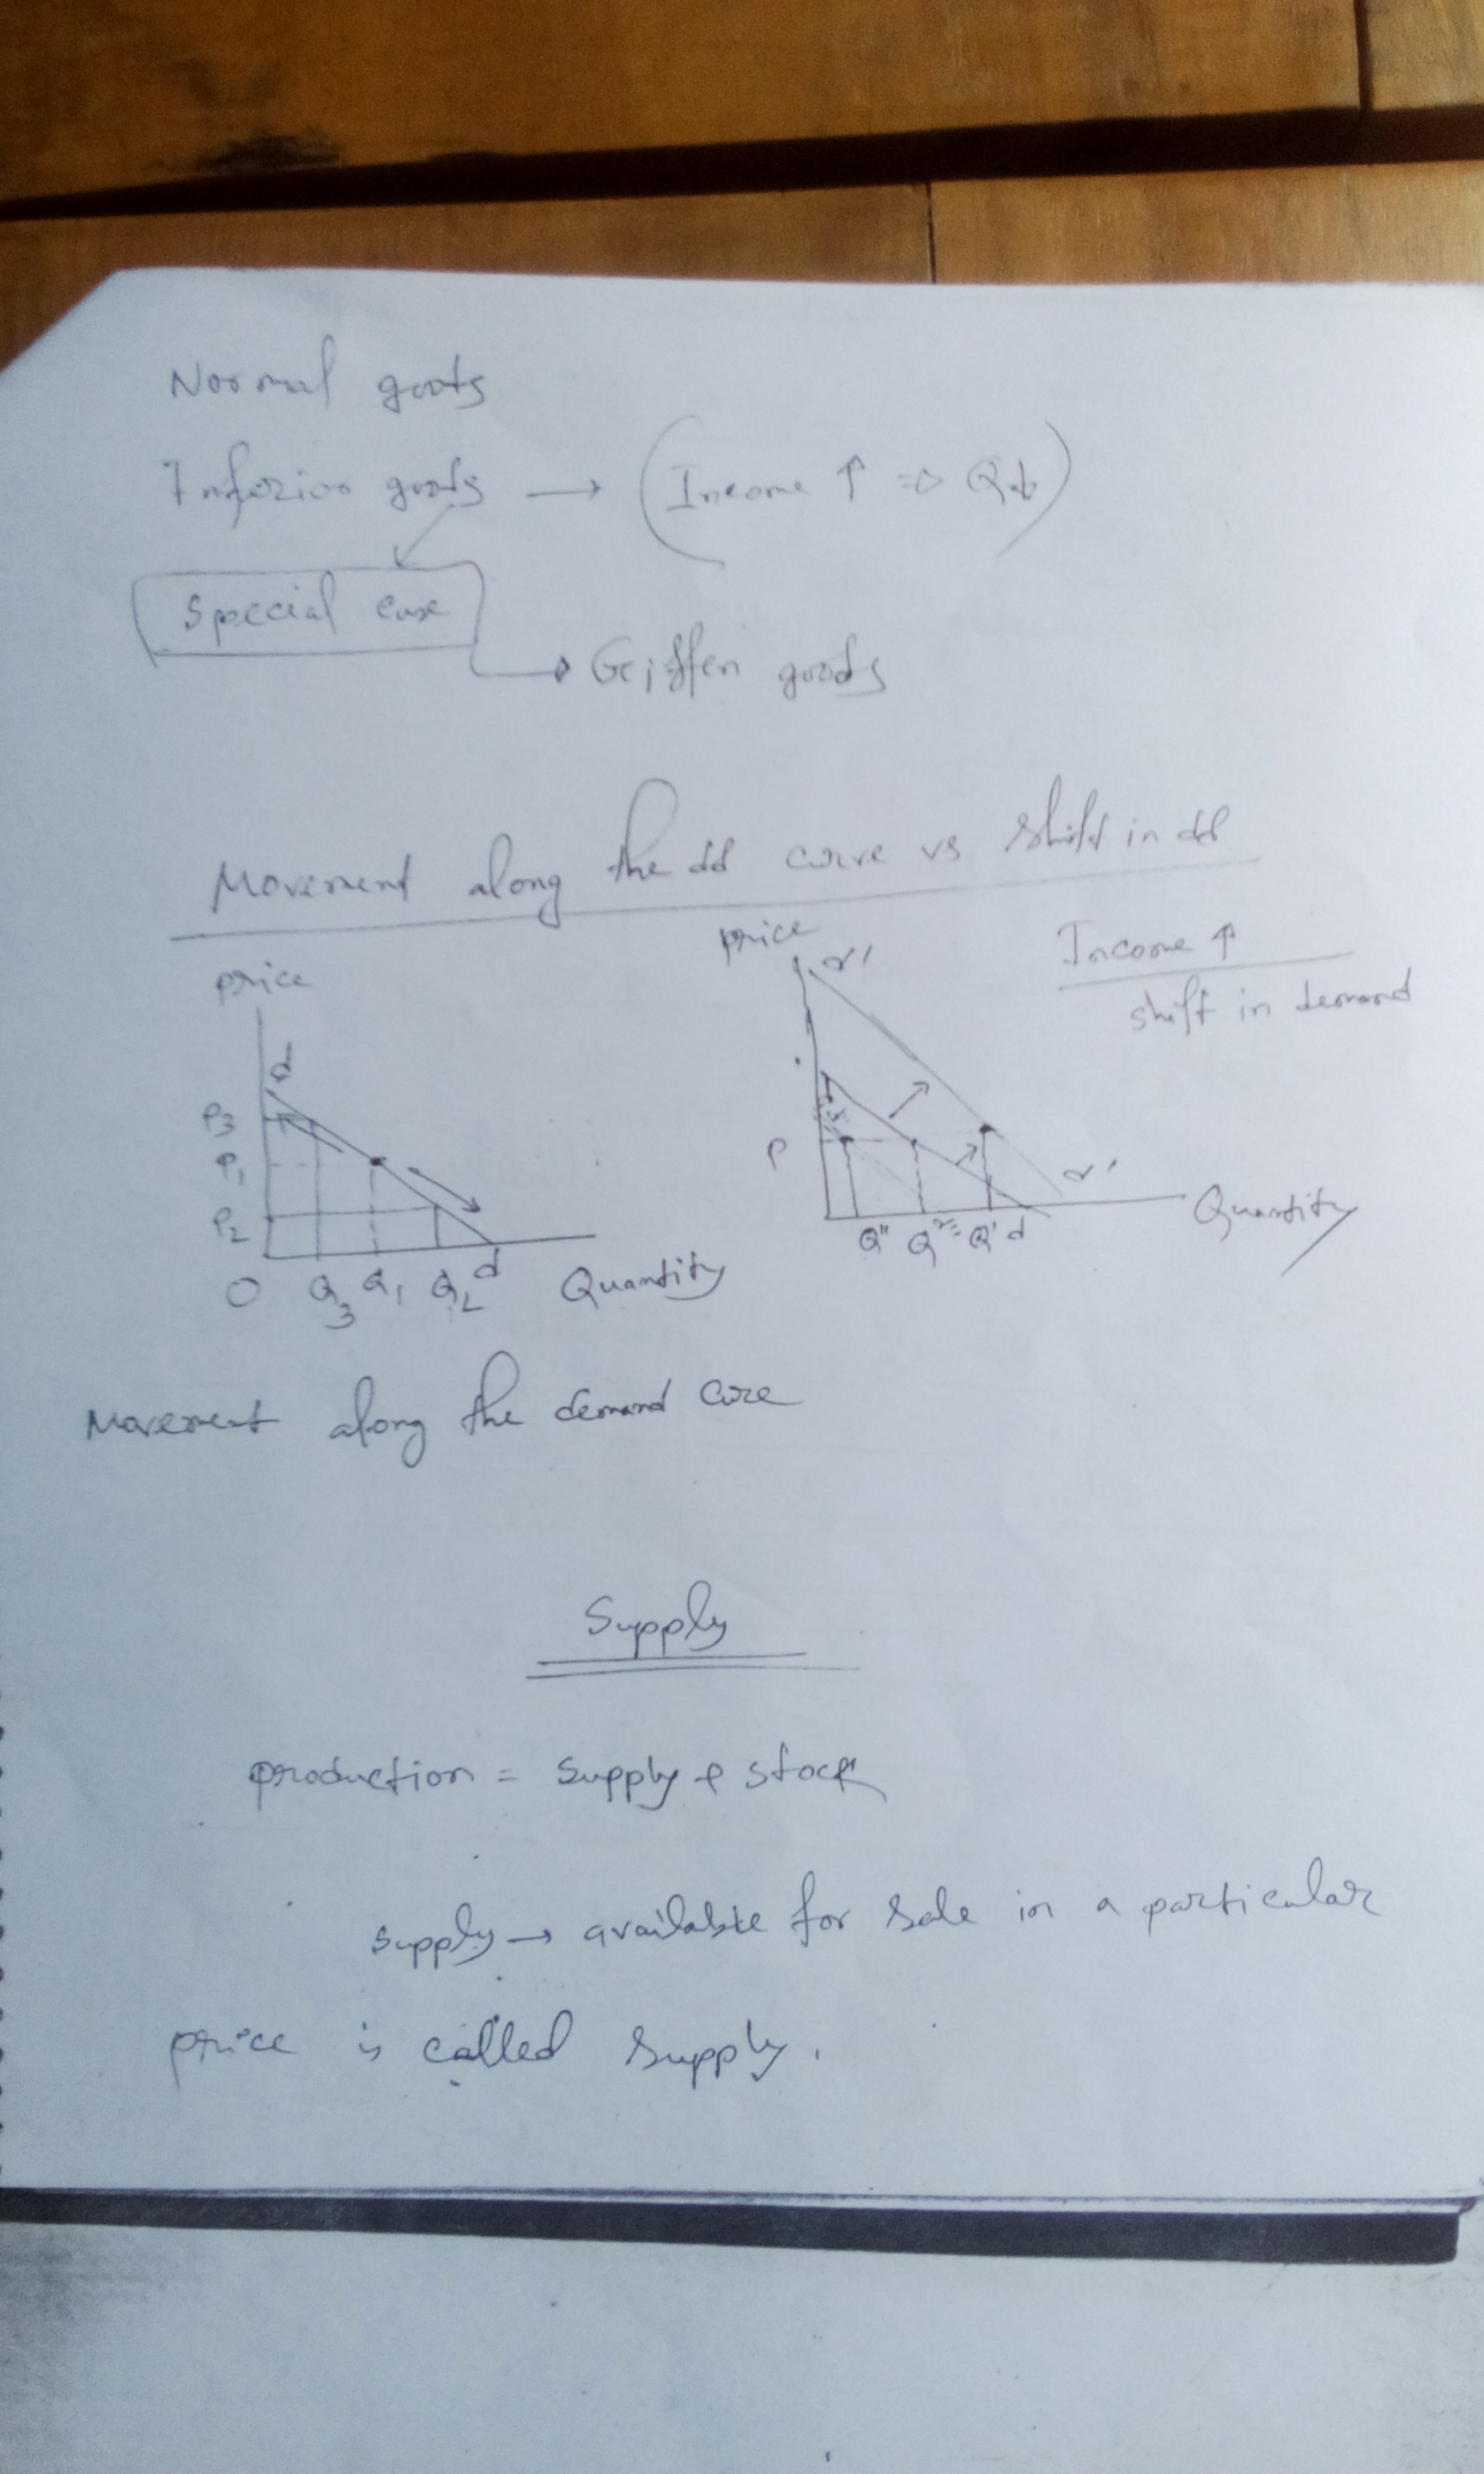 Normal goods
Inferior goods → (Income ↑ => Q↓)
Special case
→ Giffen goods
Movement along the dd curve vs shift in dd
price
d
P3
P1
P2
O Q3 Q1 Q2 d Quantity
price
d'
Income ↑
shift in demand
P
d'
Q" Q Q' d
Quantity
Movement along the demand curve
Supply
production = supply + stock
supply → available for sale in a particular
price is called supply.